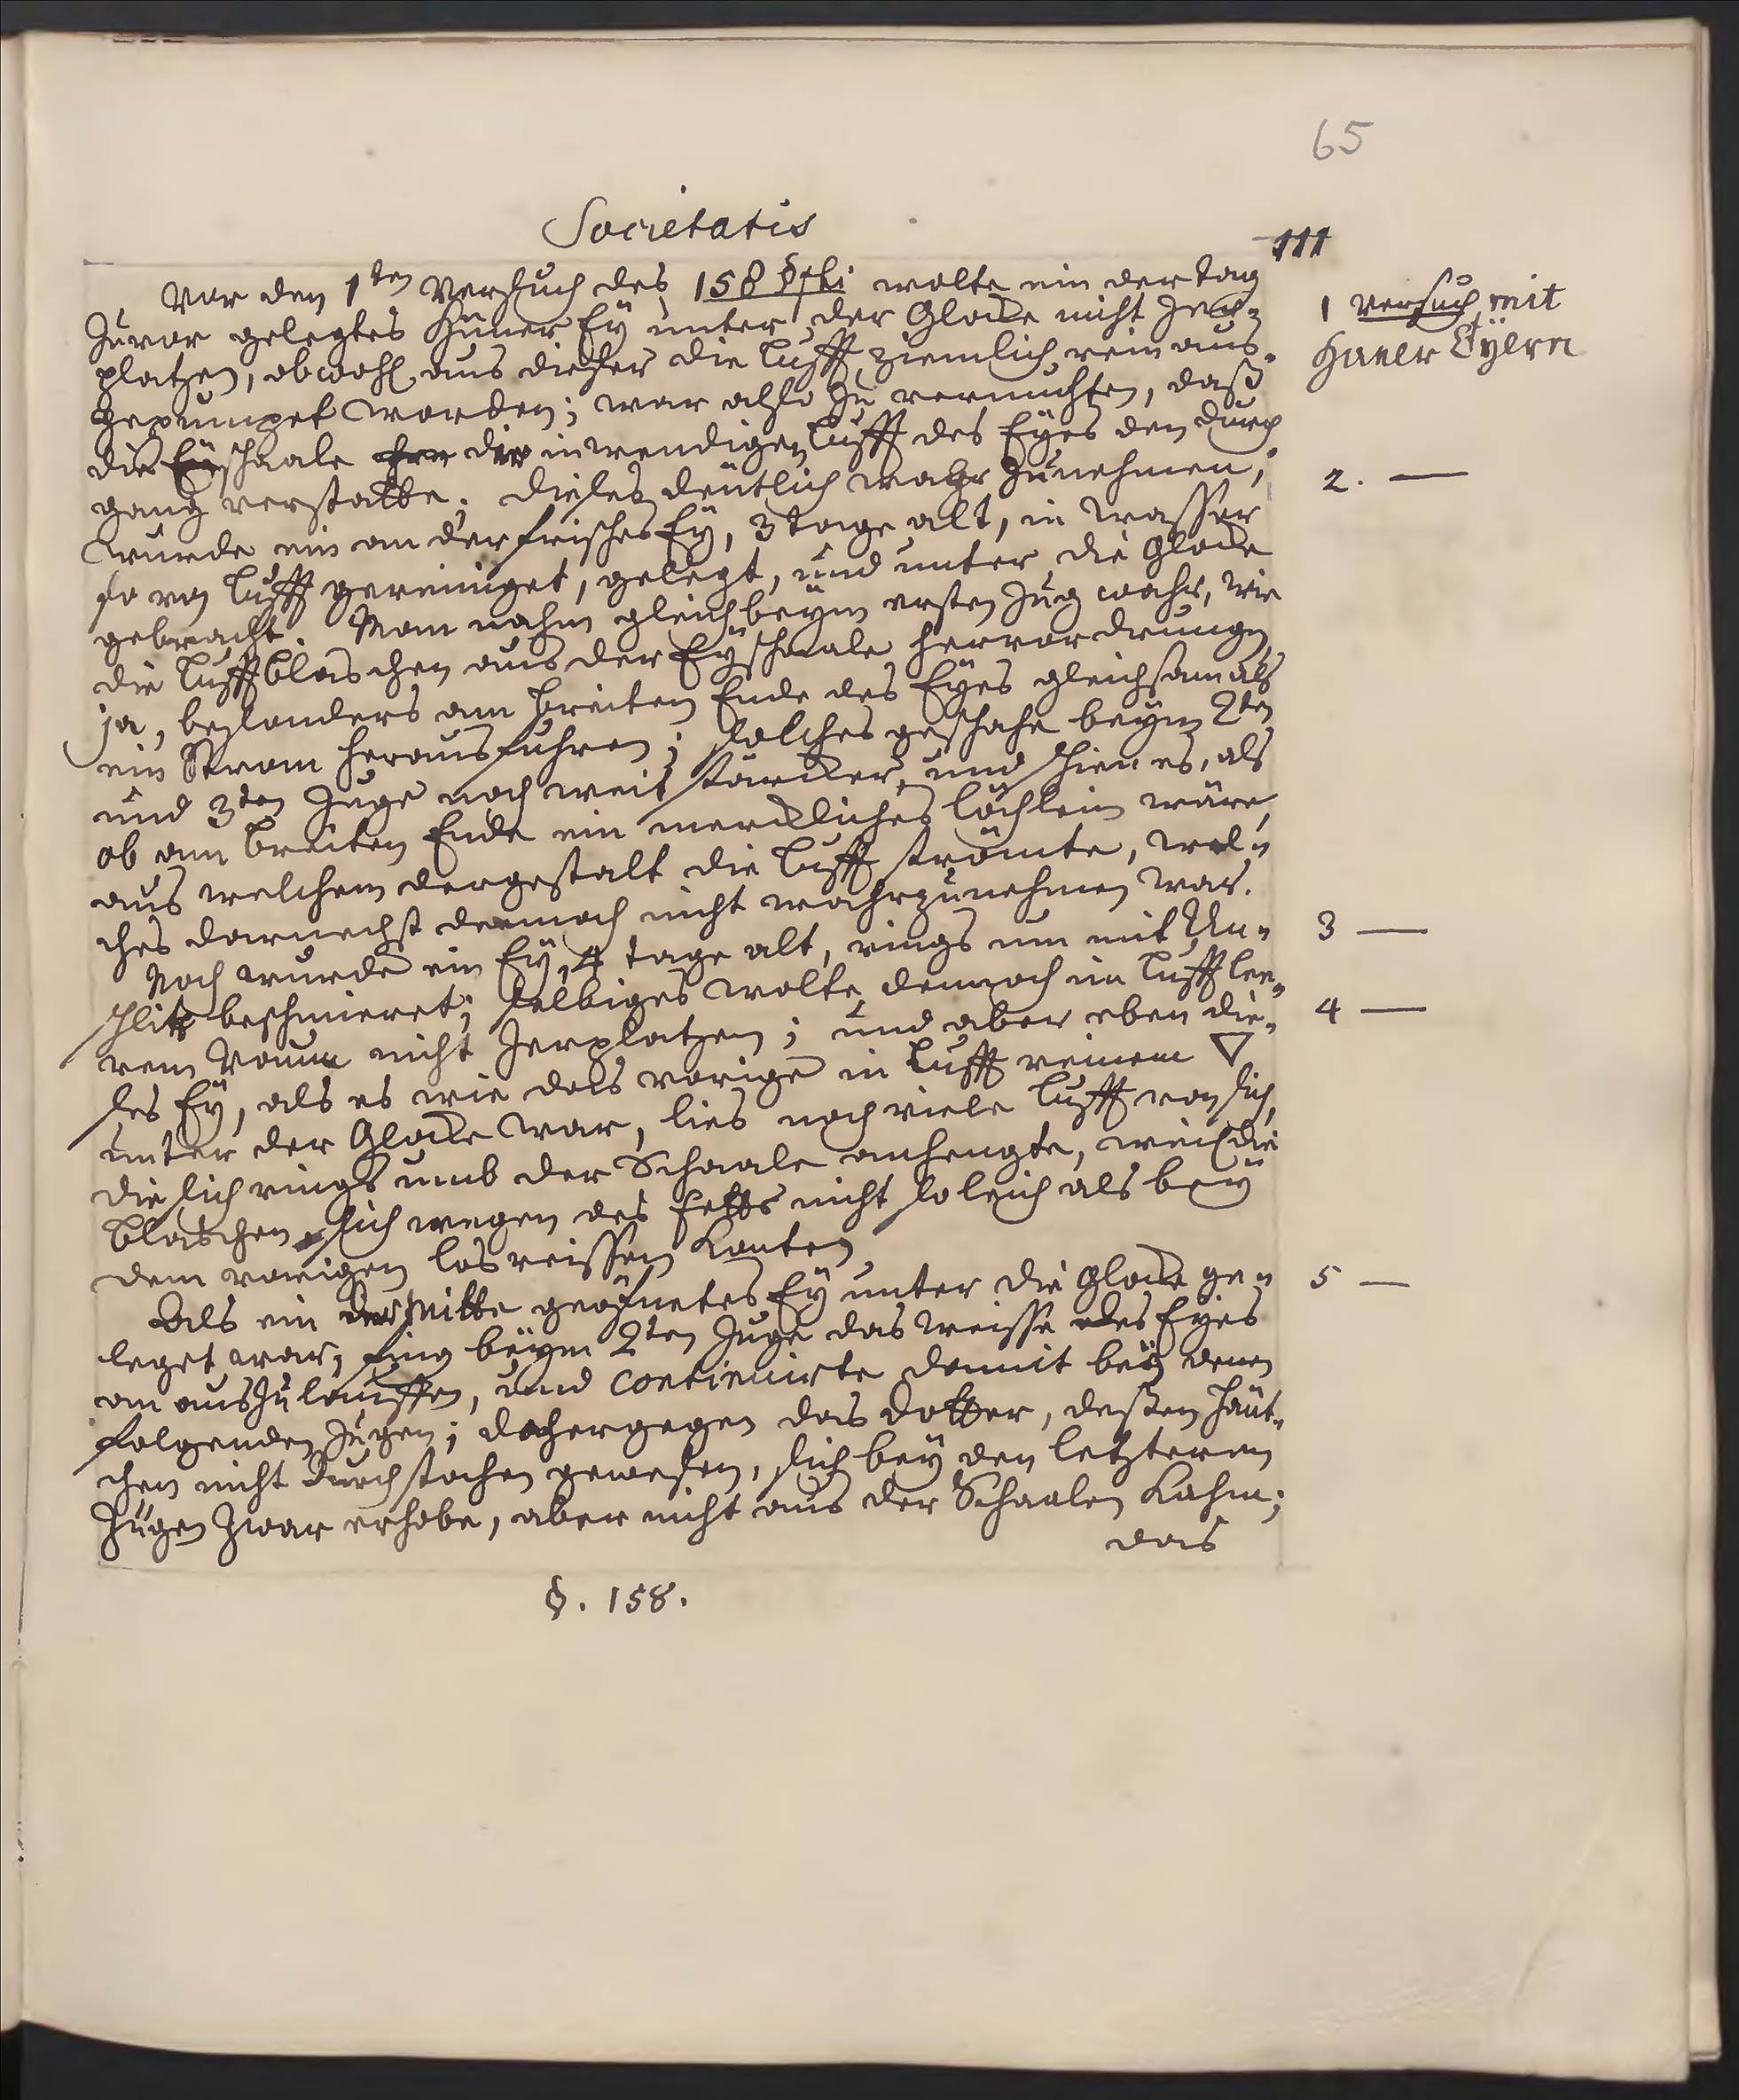 65
Societatis
111
Vor den 1ten Versuch des 158 §phi wolte ein der tag
zuvor gelegtes Hüner Ey unter der Glocke nicht zer-
platzen, obwohl aus dieser die Lufft ziemlich rein aus-
gepumpet worden; war also zu vermuhten, daß
die Eyschaale der inwendigen Lufft des Eyes den durch
gang verstatte. Dieses deutlich wahr zunehmen,
wurde ein ander frisches Ey, 3 tage alt, in Wasser
so von Lufft gereiniget, gelegt, und unter die Glocke
gebracht. Man nahm gleich beym ersten Zug wahr, wie
die Lufftbläschen aus der Eyschaale hervor drungen
ja, besonders am breiten Ende des Eyes gleichsam als
ein Strom herausfuhren; solches geschahe beym 2ten
und 3ten Zuge noch weit stärcker, und schien es, als
ob am breiten Ende ein merckliches löchlein wäre,
aus welchem dergestalt die Lufft strömte, wel-
ches darnechst dennoch nicht wahrzunehmen war.
Noch wurde ein Ey, 4 tage alt, rings um mit Un-
schlitt beschmieret; selbiges wolte dennoch im Lufft lee-
rem Raum nicht zerplatzen; und aber eben die-
ses Ey, als es wie das vorige in Lufft reinem ▽
unter der Glocke war, lies noch viele Lufft von sich,
die sich rings umb der Schaale anhengte, weil die
bläschen sich wegen des fetts nicht so leich als bey
dem vorigen losreissen konten
Als ein der Mitte geöfnetes Ey unter die Glocke ge-
leget war, fing beym 2ten Zuge das Weisse des Eyes
an auszulauffen, und continuirte damit bey denen
folgenden Zügen; dahergegen das Dotter, deßen häut-
chen nicht durchstochen gewesen, sich bey den letzteren
Zügen zwar erhobe, aber nicht aus der Schaalen kahm;
das
§. 158.
1 Versuch mit
Hüner Eyern
2. —
3 —
4 —
5 —